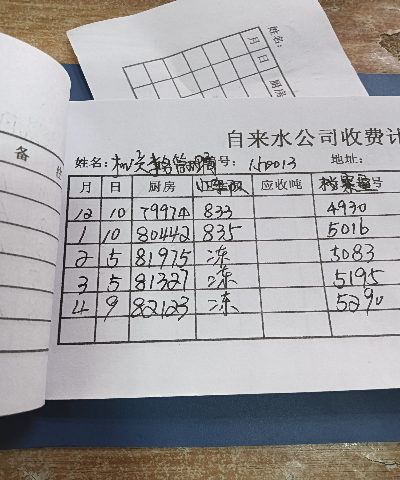 姓名：
月 日 厨房
备
自来水公司收费计
姓名： 号： 150013 地址：
月 日 厨房 应收吨 号
12 10 79974 833 4930
1 10 80442 835 5016
2 5 81975 冻 5083
3 5 81327 冻 5195
4 9 82123 冻 5290